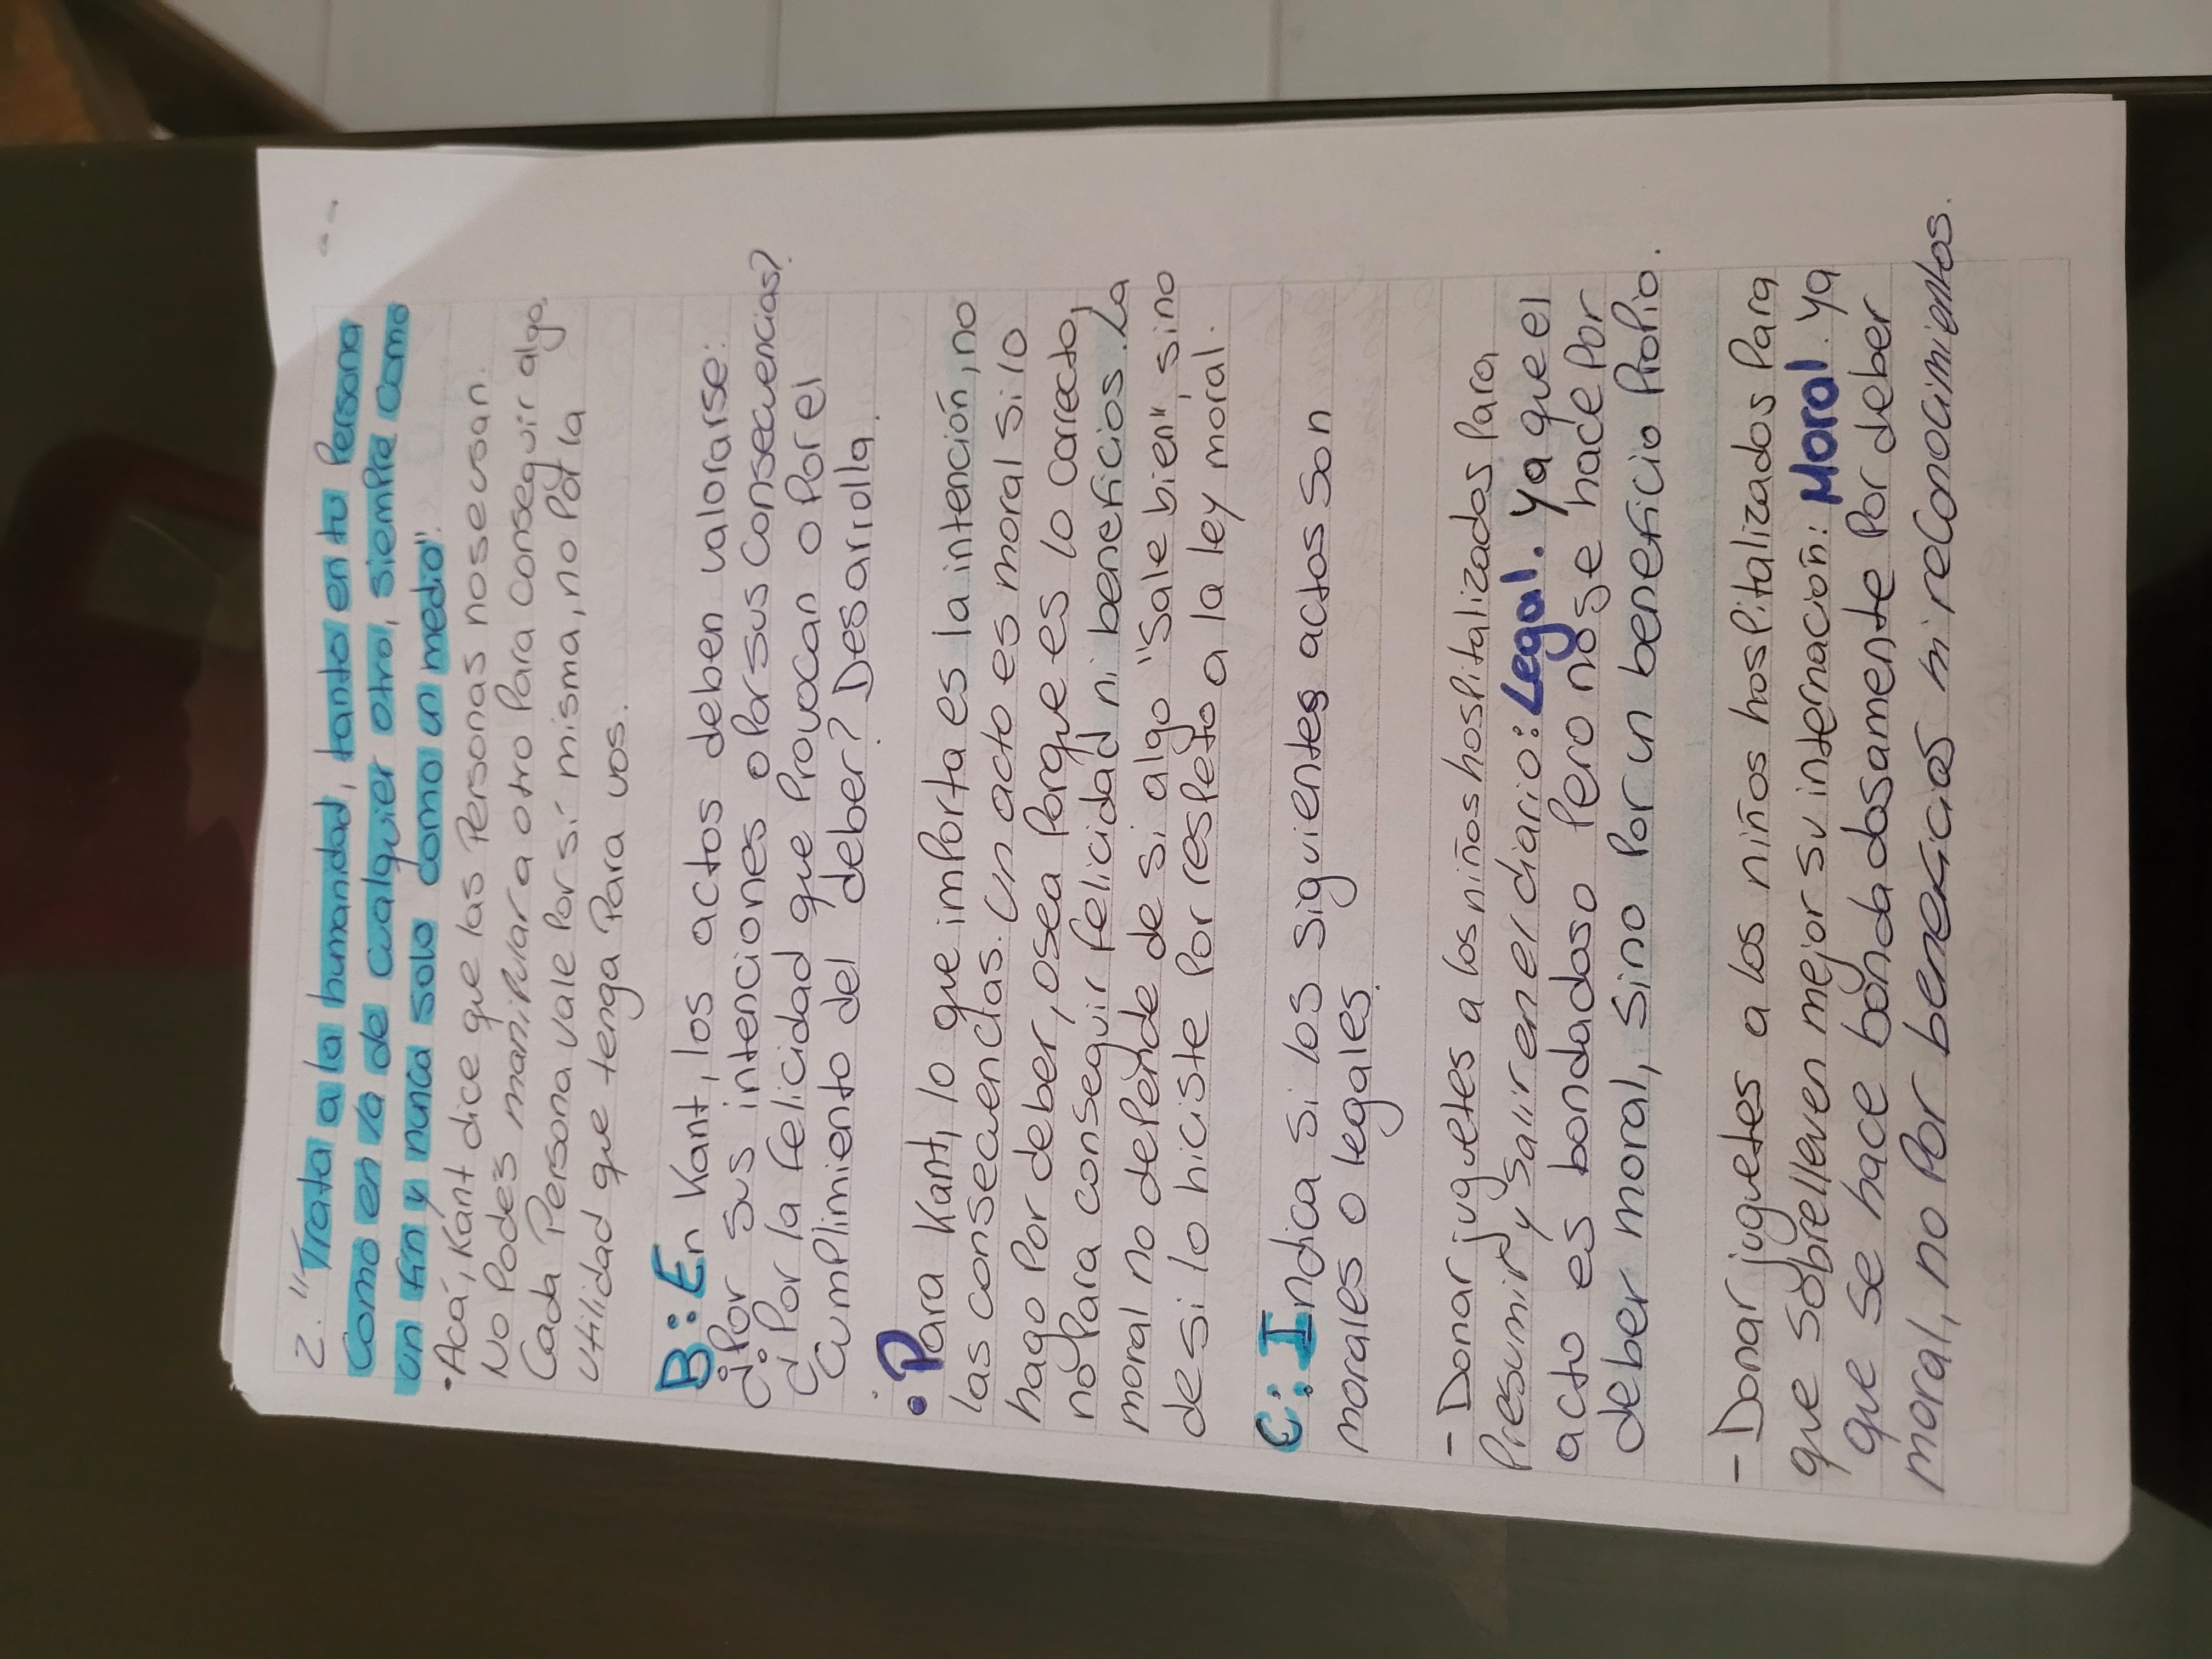 2. "Trata a la humanidad, tanto en tu Persona
como en la de cualquier otro, siempre como
un fin y nunca solo como un medio".
•Acá, Kant dice que las Personas no se usan.
No Podes manipular a otro Para conseguir algo,
Cada Persona vale Por sí misma, no Por la
utilidad que tenga Para vos.
B: En Kant, los actos deben valorarse:
¿Por sus intenciones o Por sus consecuencias?
¿Por la felicidad que Provocan o Por el
cumplimiento del deber? Desarrolla.
• Para Kant, lo que importa es la intención, no
las consecuencias. Un acto es moral si lo
hago Por deber, osea Porque es lo correcto,
no Para conseguir felicidad ni beneficios. La
moral no depende de si algo "Sale bien", sino
de si lo hiciste Por respeto a la ley moral.
C: Indica si los siguientes actos son
morales o legales.
- Donar juguetes a los niños hospitalizados Para
Presumir y salir en el diario: Legal. Ya que el
acto es bondadoso Pero no se hace Por
deber moral, sino Por un beneficio Propio.
- Donar juguetes a los niños hospitalizados Para
que sobrelleven mejor su internación: Moral. Ya
que se hace bondadosamente Por deber
moral, no Por benecios ni reconocimientos.